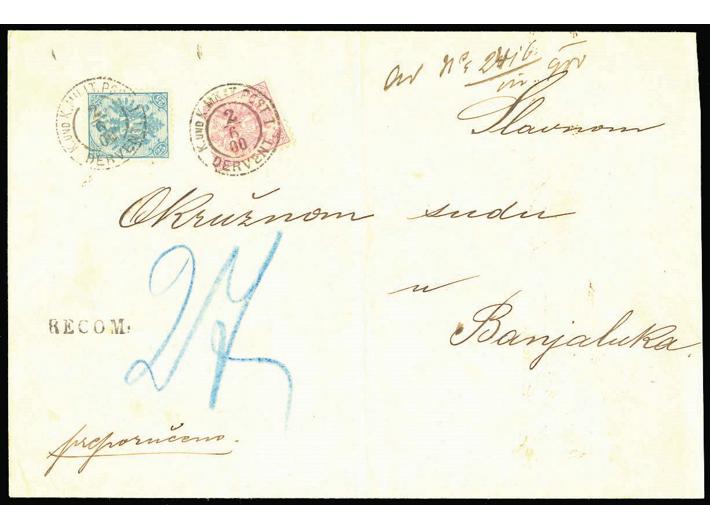 K. UND K. MILIT. POST
DERVENT
K. UND K. MILIT. POST
2
6
00
DERVENT
Slavnom
Okružnom sudu
u
Banjaluka.
RECOM.
27
preporučeno.